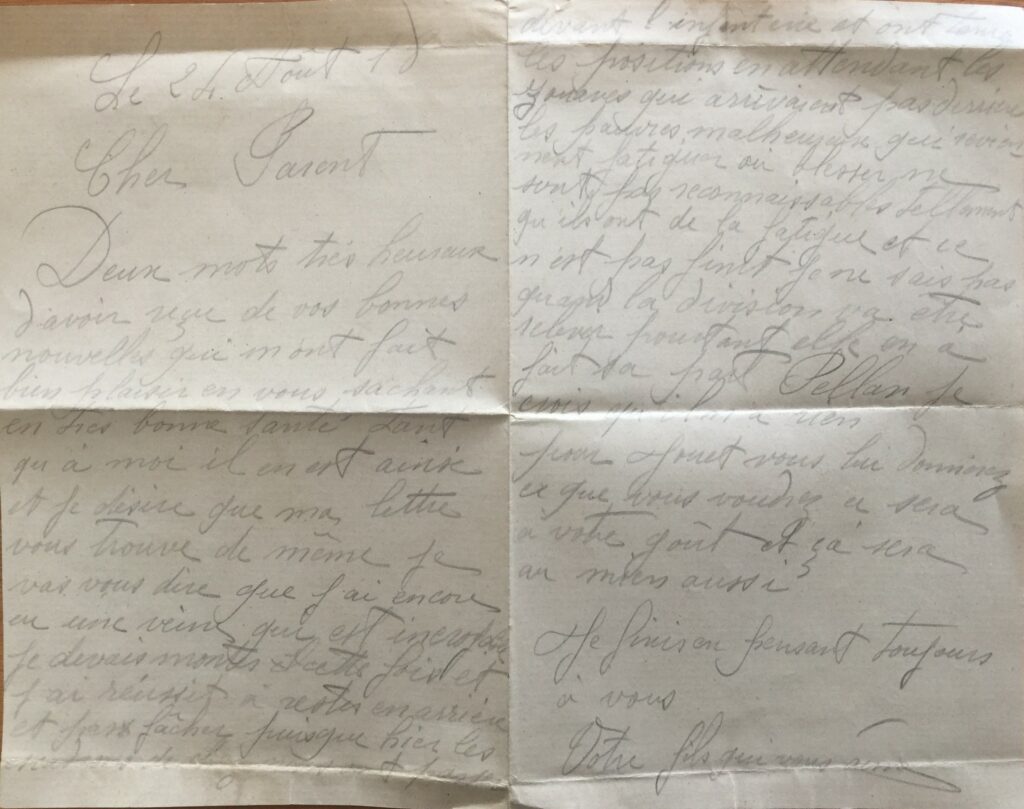 Le 24 Août 18
Cher Parent
Deux mots très heureux
d'avoir reçue de vos bonnes
nouvelles qui m'ont fait
bien plaisir en vous sachant
en très bonne santé tant
qu'à moi il en est ainsi
et je désire que ma lettre
vous trouve de même je
vas vous dire que j'ai encore
eu une veine qui est incroyable
je devais monter cette fois et
j'ai réussit à rester en arrière
et pas fâcher puisque hier les
devant l'infanterie et ont
les positions en attendant les
zouaves que arrivaient pas derrière
les pauvres malheureux qui revien
nent fatiguer ou blesser ne
sont pas reconnaissables tellement
qu'ils ont de la fatigue et ce
n'est pas finit je ne sais pas
quand la division va être
relever pourtant elle en a
fait sa part Pellan je
crois qu'il a rien
pour Jouet vous lui donnerez
ce que vous voudrez ce sera
à votre goût et ça sera
au mien aussi
Je finis en pensant toujours
à vous
Votre fils qui vous